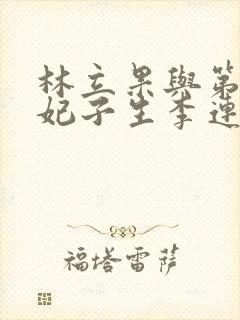 林立果與第
妃子生李連
福塔雷萨